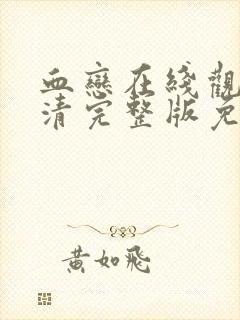 血戀在綫觀
清完整版免
黄如飛